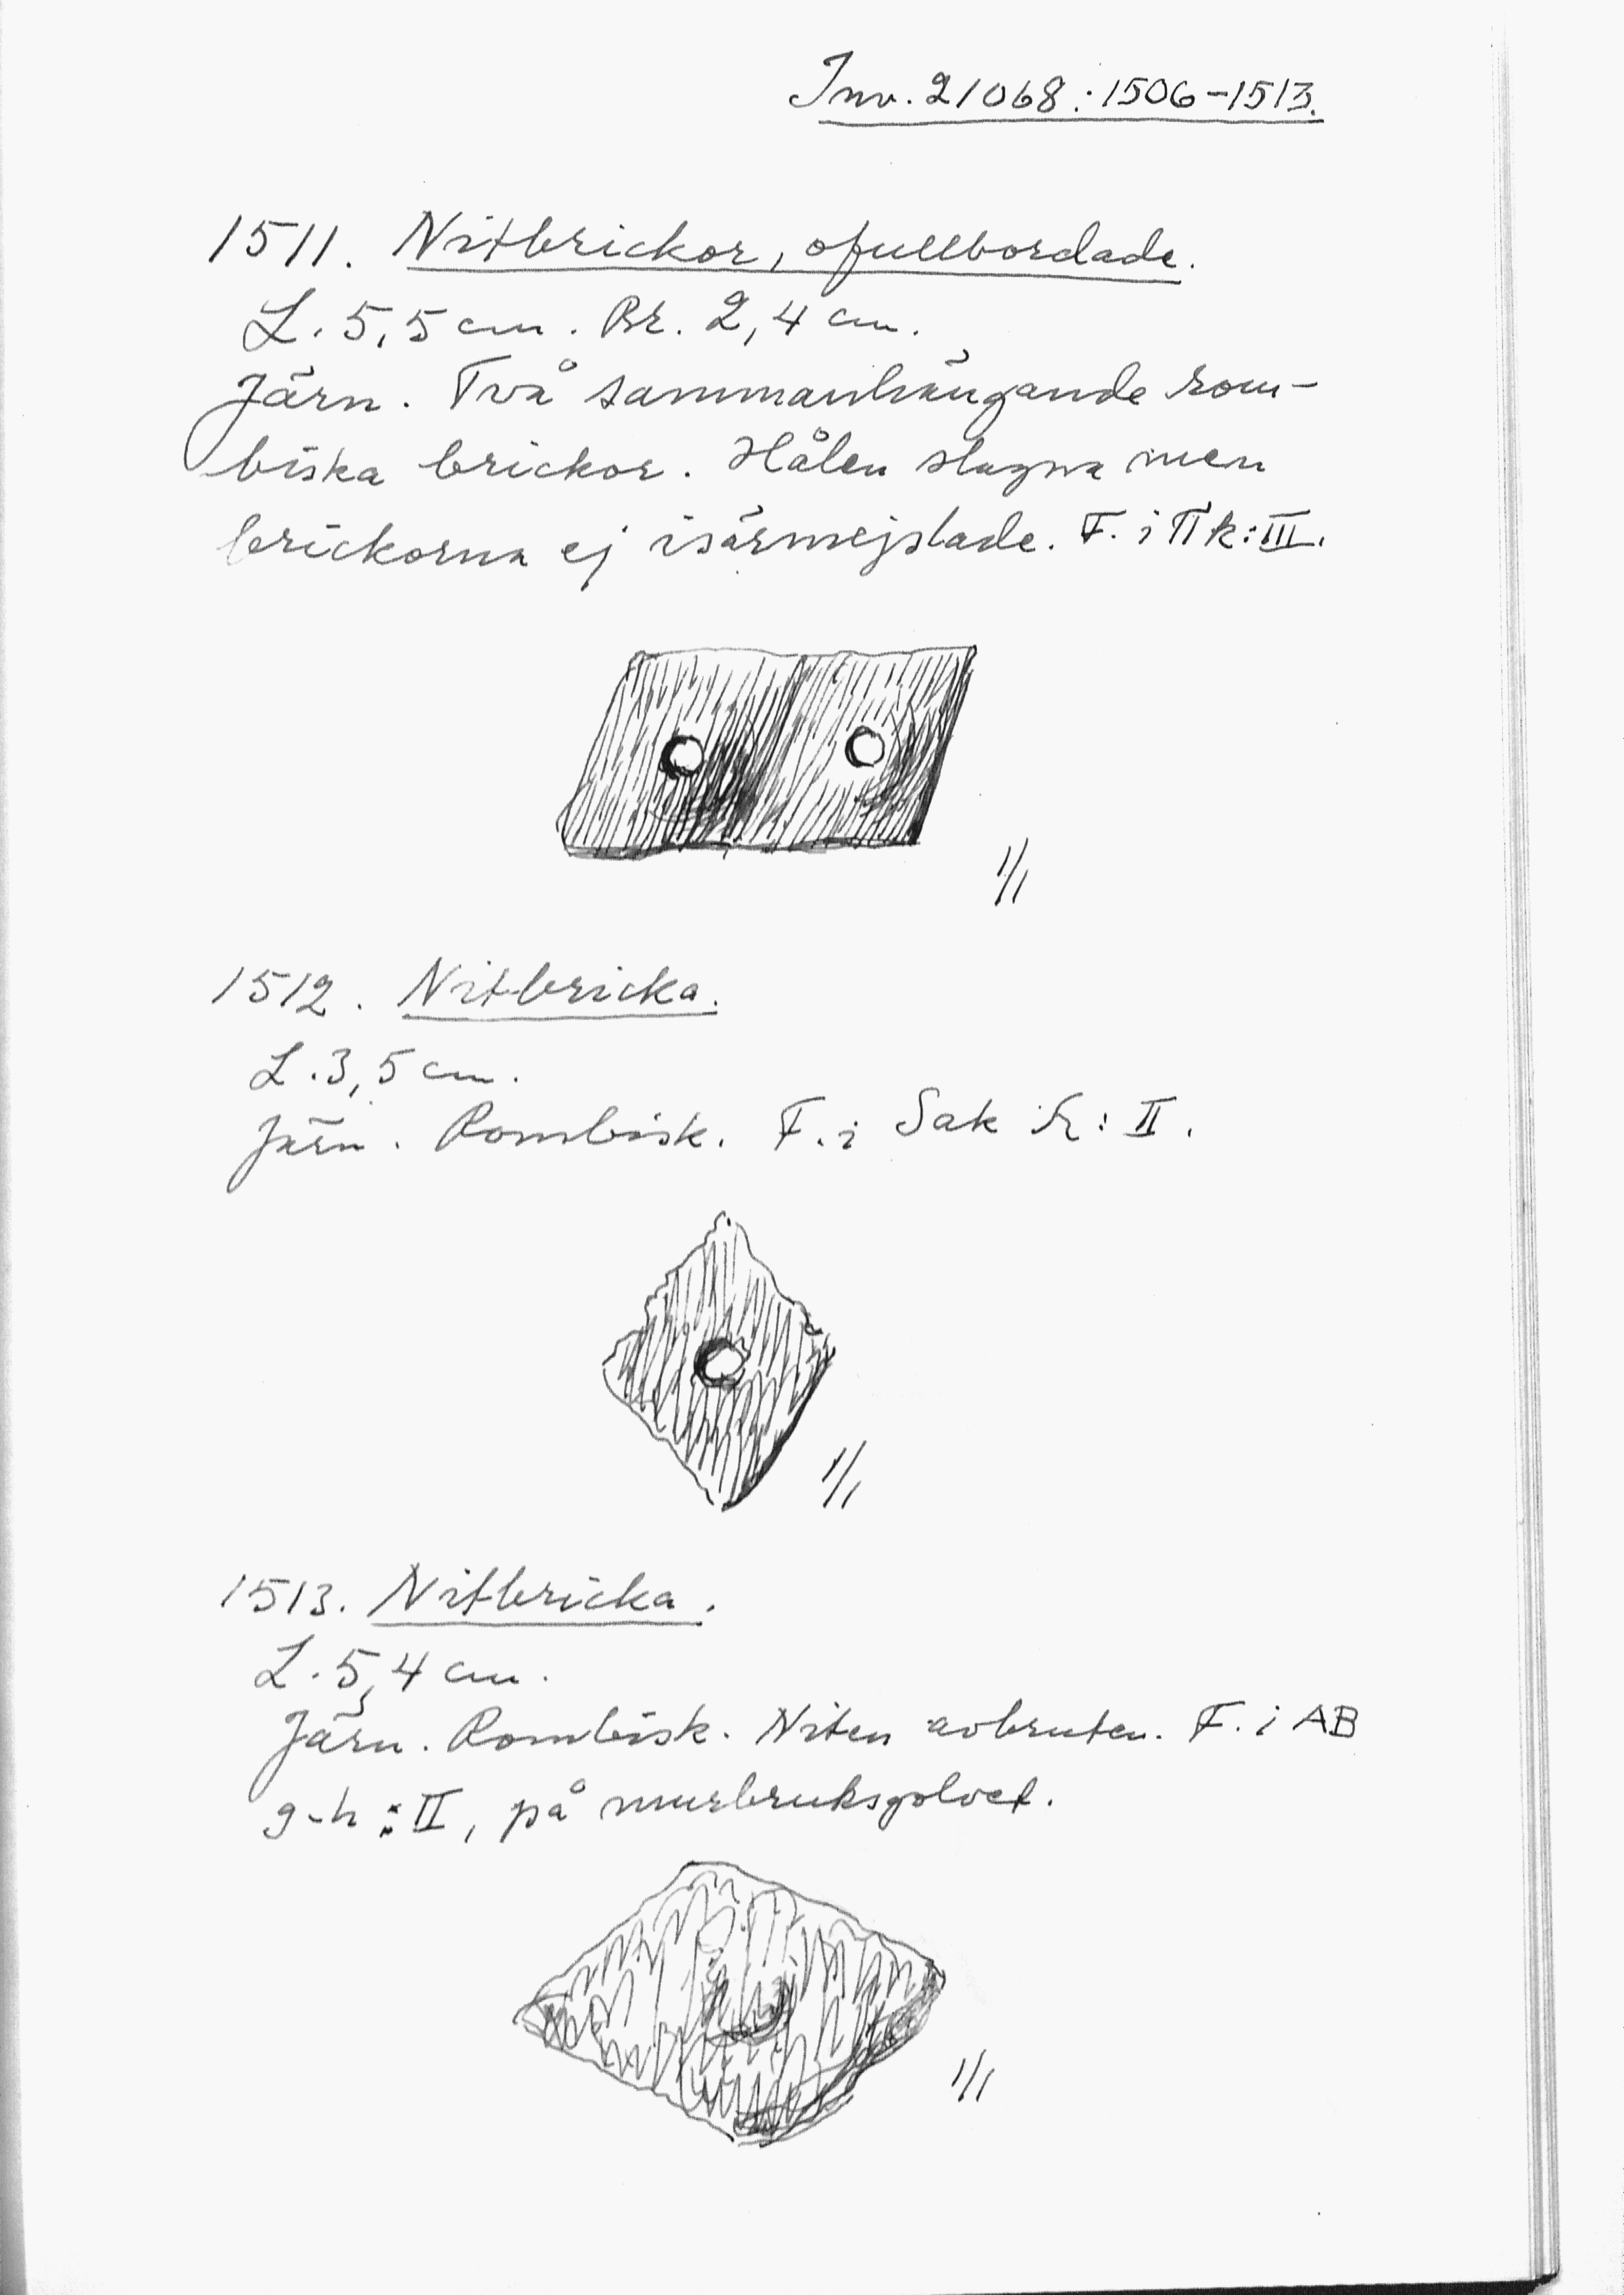 Inv. 21068:1506-1513.
1511. Nitbrickor, ofullbordade.
L. 5,5 cm. Br. 2,4 cm.
Järn. Två sammanhängande rom-
biska brickor. Hålen slagna men
brickorna ej isärmejslade. F. i Π k:III.
1/1
1512. Nitbricka.
L. 3,5 cm.
Järn. Rombisk. F. i Sak : II.
1/1
1513. Nitbricka.
L. 5,4 cm.
Järn. Rombisk. Niten avbruten. F. i AB
g-h : II, på murbruksgolvet.
1/1